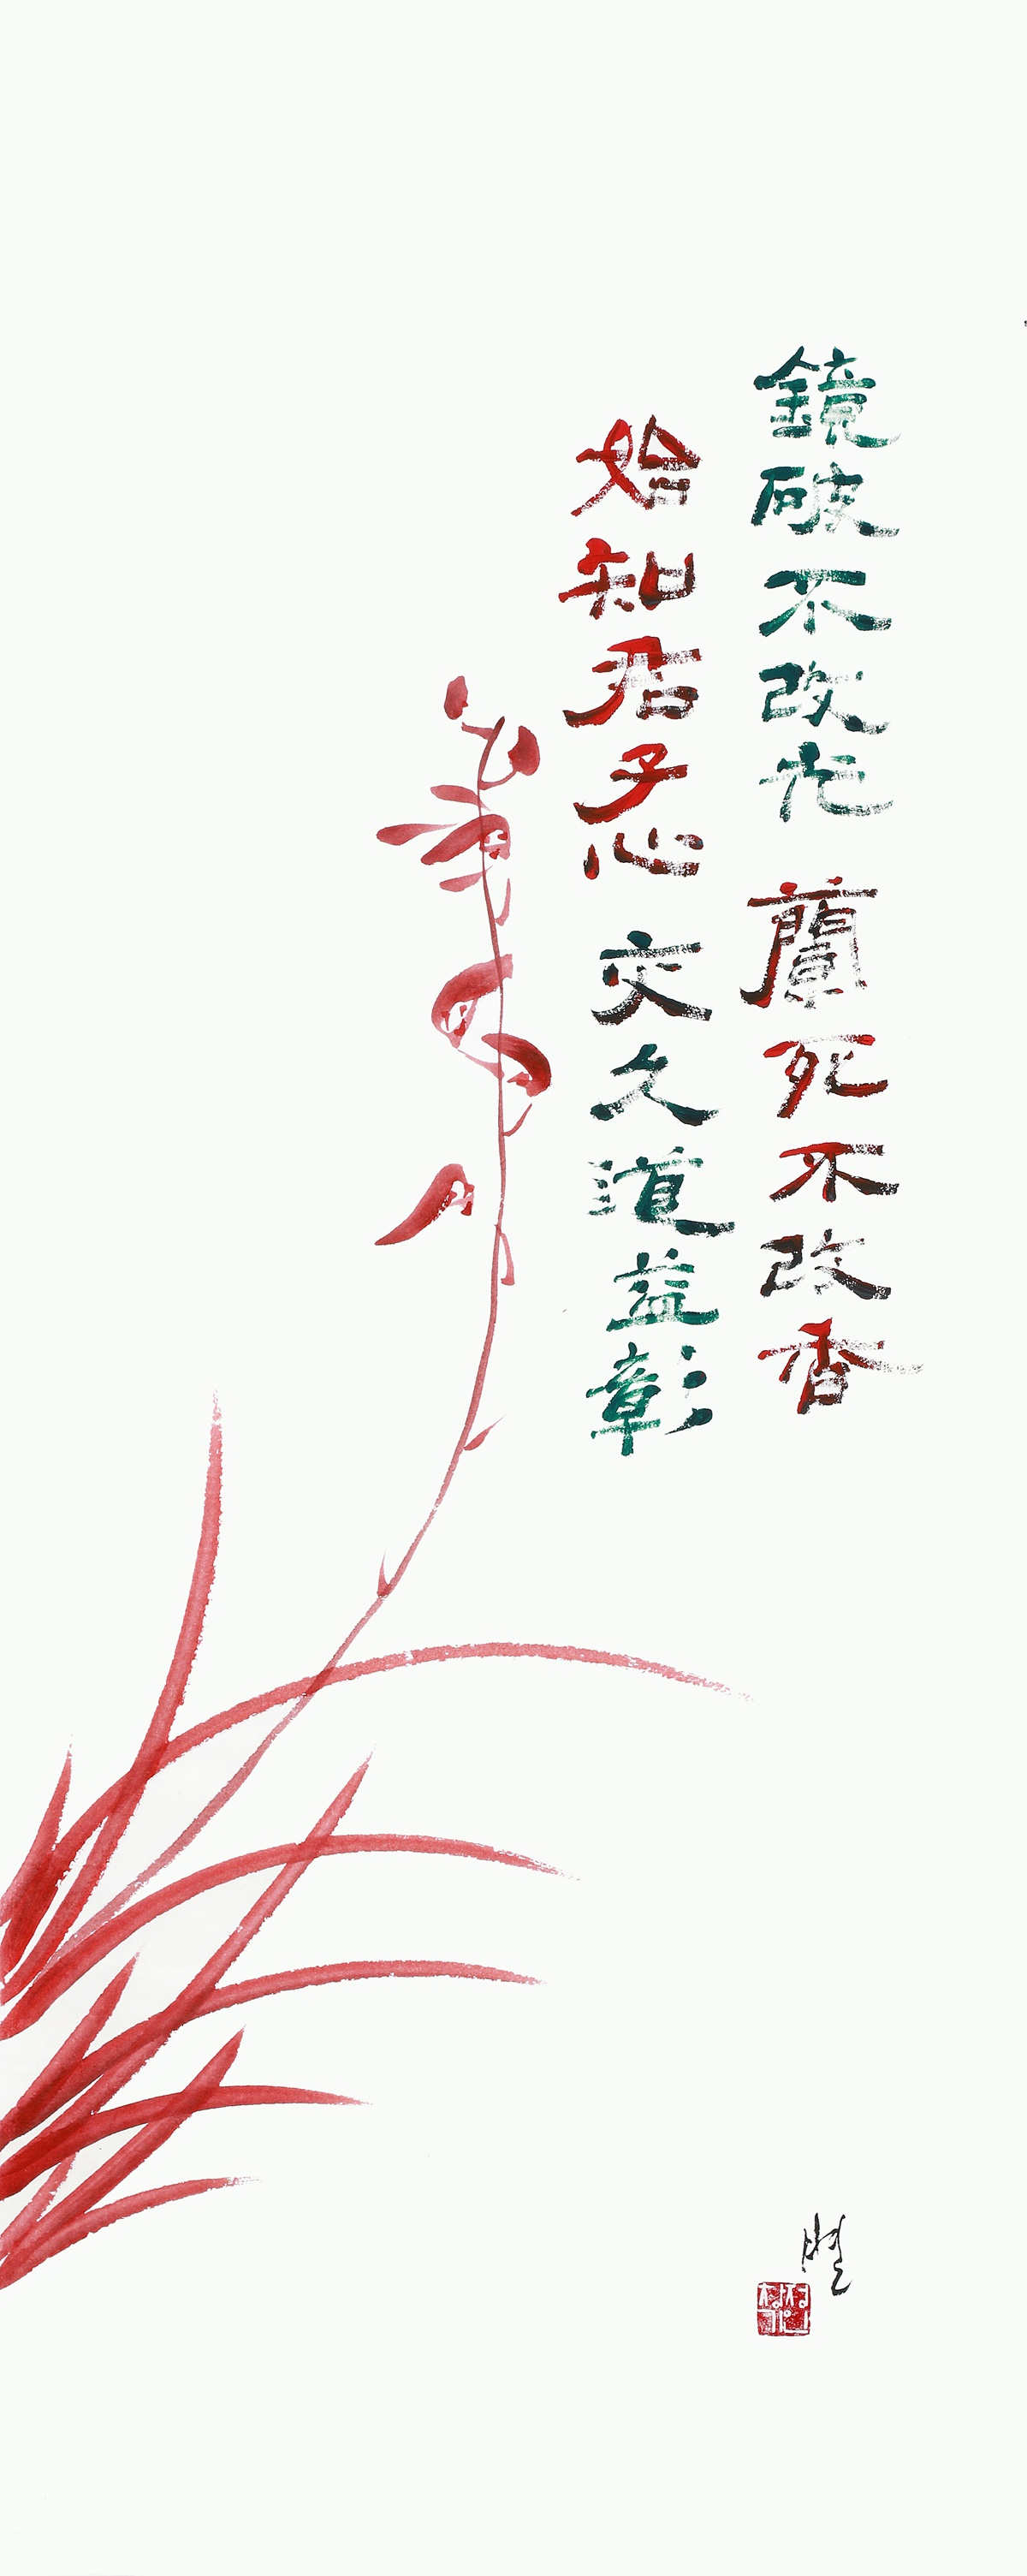 鏡破不改光 蘭死不改香
始知君子心 交久道益彰